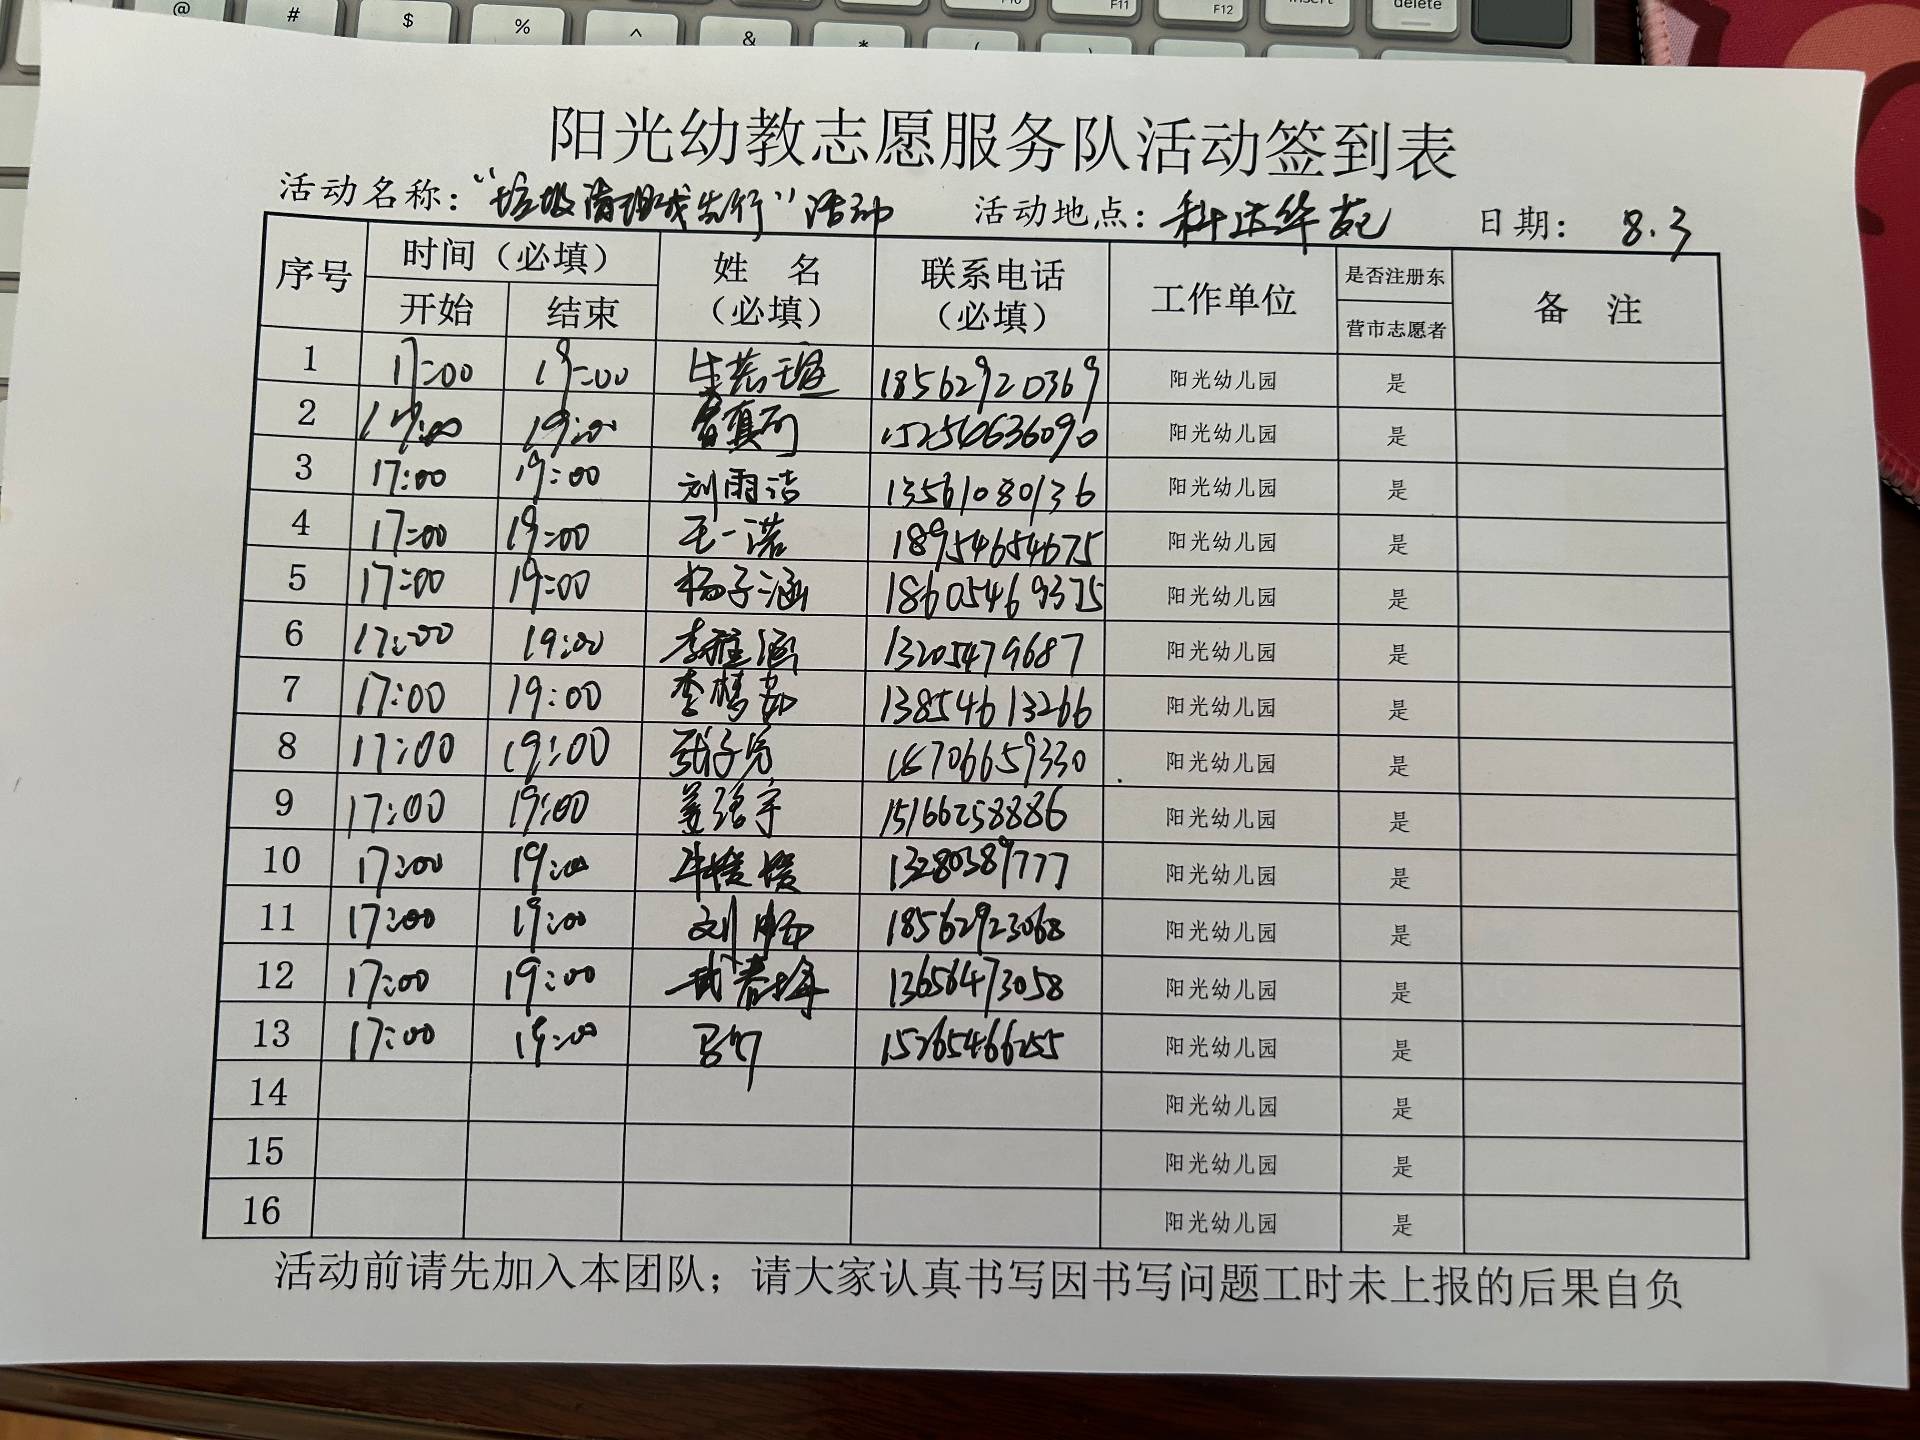 阳光幼教志愿服务队活动签到表
活动名称：“垃圾清理我先行”活动 活动地点：科达华苑 日期： 8.3
序号 时间（必填） 姓 名（必填） 联系电话（必填） 工作单位 是否注册东营市志愿者 备 注
开始 结束
1 17:00 19:00 18562920369 阳光幼儿园 是
2 17:00 19:00 15254636090 阳光幼儿园 是
3 17:00 19:00 刘雨洁 13561080136 阳光幼儿园 是
4 17:00 19:00 王一诺 18954654675 阳光幼儿园 是
5 17:00 19:00 杨子涵 18605469375 阳光幼儿园 是
6 17:00 19:00 李雅涵 13205479687 阳光幼儿园 是
7 17:00 19:00 李梦茹 13854613266 阳光幼儿园 是
8 17:00 19:00 张子 18706659330 阳光幼儿园 是
9 17:00 19:00 姜 宇 15166258886 阳光幼儿园 是
10 17:00 19:00 13280389777 阳光幼儿园 是
11 17:00 19:00 刘 18562923068 阳光幼儿园 是
12 17:00 19:00 武春梅 13656473058 阳光幼儿园 是
13 17:00 19:00 15265466255 阳光幼儿园 是
14 阳光幼儿园 是
15 阳光幼儿园 是
16 阳光幼儿园 是
活动前请先加入本团队；请大家认真书写因书写问题工时未上报的后果自负